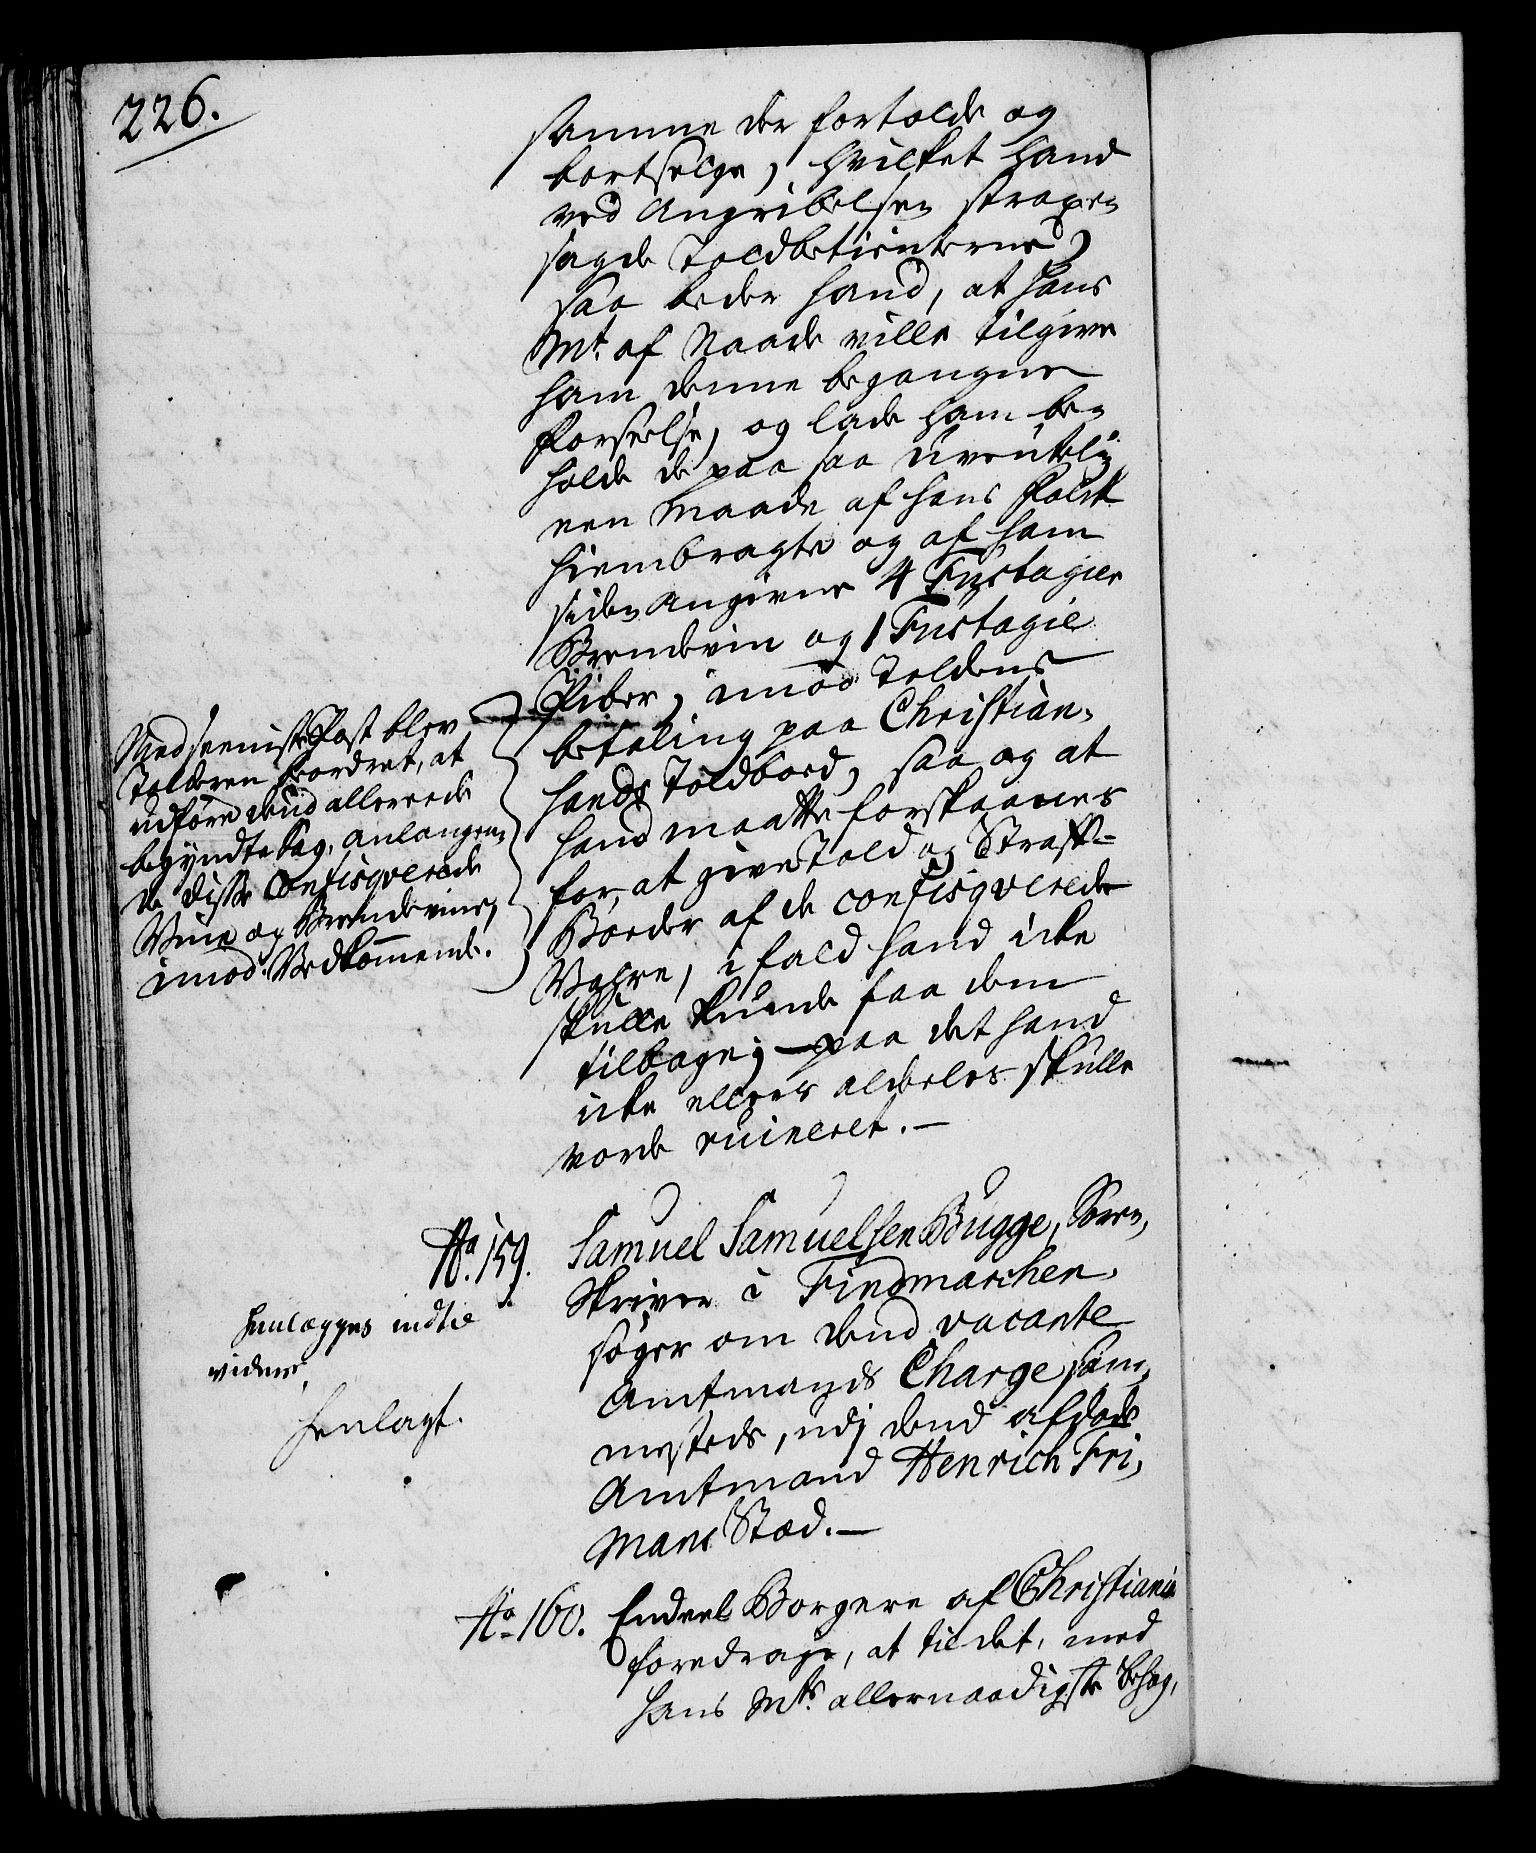 226.
samme der fortolde og
bortselge, hvilket hand
ved Angribelsen straxen
sagde Toldbetienterne,
saa beder hand, at Hans
Mt. af Naade ville tilgive
ham denne begangne
Forseelse, og lade ham be-
holde de paa saa uventelig
een Maade af hans Folk
hiembragte og af ham
siden Angivne 4 Fustagier
Brendeviin og 1 Fustagie
Piber, imod Toldens
betaling paa Christian-
sands Toldboed, saa og at
hand maatte forskaanes
for, at give Told og Straff-
Bøder af de confisqverede
Vahre, i fald hand icke
skulle kunde faa dem
tilbage; paa det hand
icke ellers aldeles skulle
vorde ruineret.
Med seeniste Post blev
Tolderen beordret, at
udføre dend allerede
begyndte Sag, anlangen-
de disse Confisqverede
Vine og Brendevine,
imod Vedkommende.
No. 159.
Samuel Samuelsen Bugge, Soren-
Skriver i Findmarchen,
søger om dend vacante
Amtmands Charge sam-
mesteds, udj dend afdøde
Amtmand Henrich Fri-
mans Stæd.
Henlægges indtil
videre.
Henlagt.
No. 160.
Endeel Borgere af Christiania
foredrage, at til det, med
Hans Mts. allernaadigste Behag,